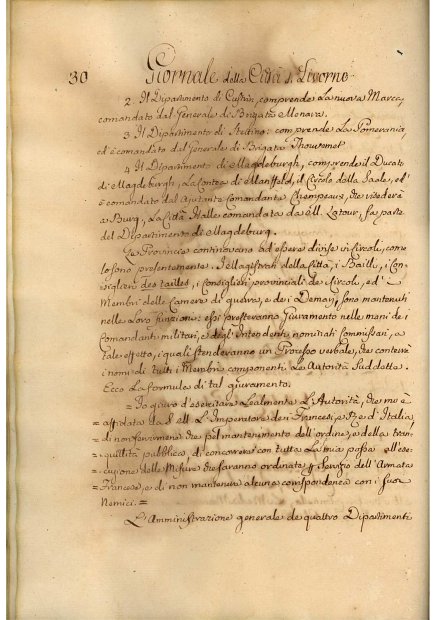 30 Giornale della Città di Livorno
2 Il Dipartimento di Custrin, comprende La nuova Marca,
comandato dal Generale di Brigata Menard.
3 Il Dipartimento di Stettino: comprende La Pomerania
ed è comandato dal Generale di Brigata Thouvenot
4 Il Dipartimento di Magdeburgh, comprende il Ducato
di Magdeburgh, La Contea di Mansfeld, il Circolo della Saale, ed'
è comandato dal Ajutante Comandante che risiederà
a Burg, La Città Halle comandata da M. Latour, fa parte
del Dipartimento di Magdeburg.
Le Provincie continovano ad essere divise in Circoli, come
lo sono presentemente. I Magistrati della Città, i Bailli, i Con-
siglieri des tailles, i Consiglieri provinciali de Circoli, ed' i
Membri delle Camere di guerra, e de i Demanj, sono mantenuti
nelle Loro funzioni: essi presteranno Giuramento nelle mani de i
Comandanti militari, e degl'Intendenti nominati Commissari, a
Tale effetto, i quali stenderanno un Processo verbale, che conterrà
i nomi di tutti i Membri componenti Le Autorità Suddette.
Ecco La formula di tal giuramento.
= Io giuro d'esercitare Lealmente L'Autorità, che mi è
= affidata da S. M. L'Imperatore de i Francesi, e Rè d'Italia,
= di non servirmene che pel mantenimento dell'ordine, e della tran-
= quillità pubblica, di concorrere con tutta La mia possa all'ese-
= cuzione delle Misure che saranno ordinate pel Servizio dell'Armata
= Francese, e di non mantenere alcuna corrispondenza con i suoi
Nemici. =
L'Amministrazione generale de quattro Dipartimenti